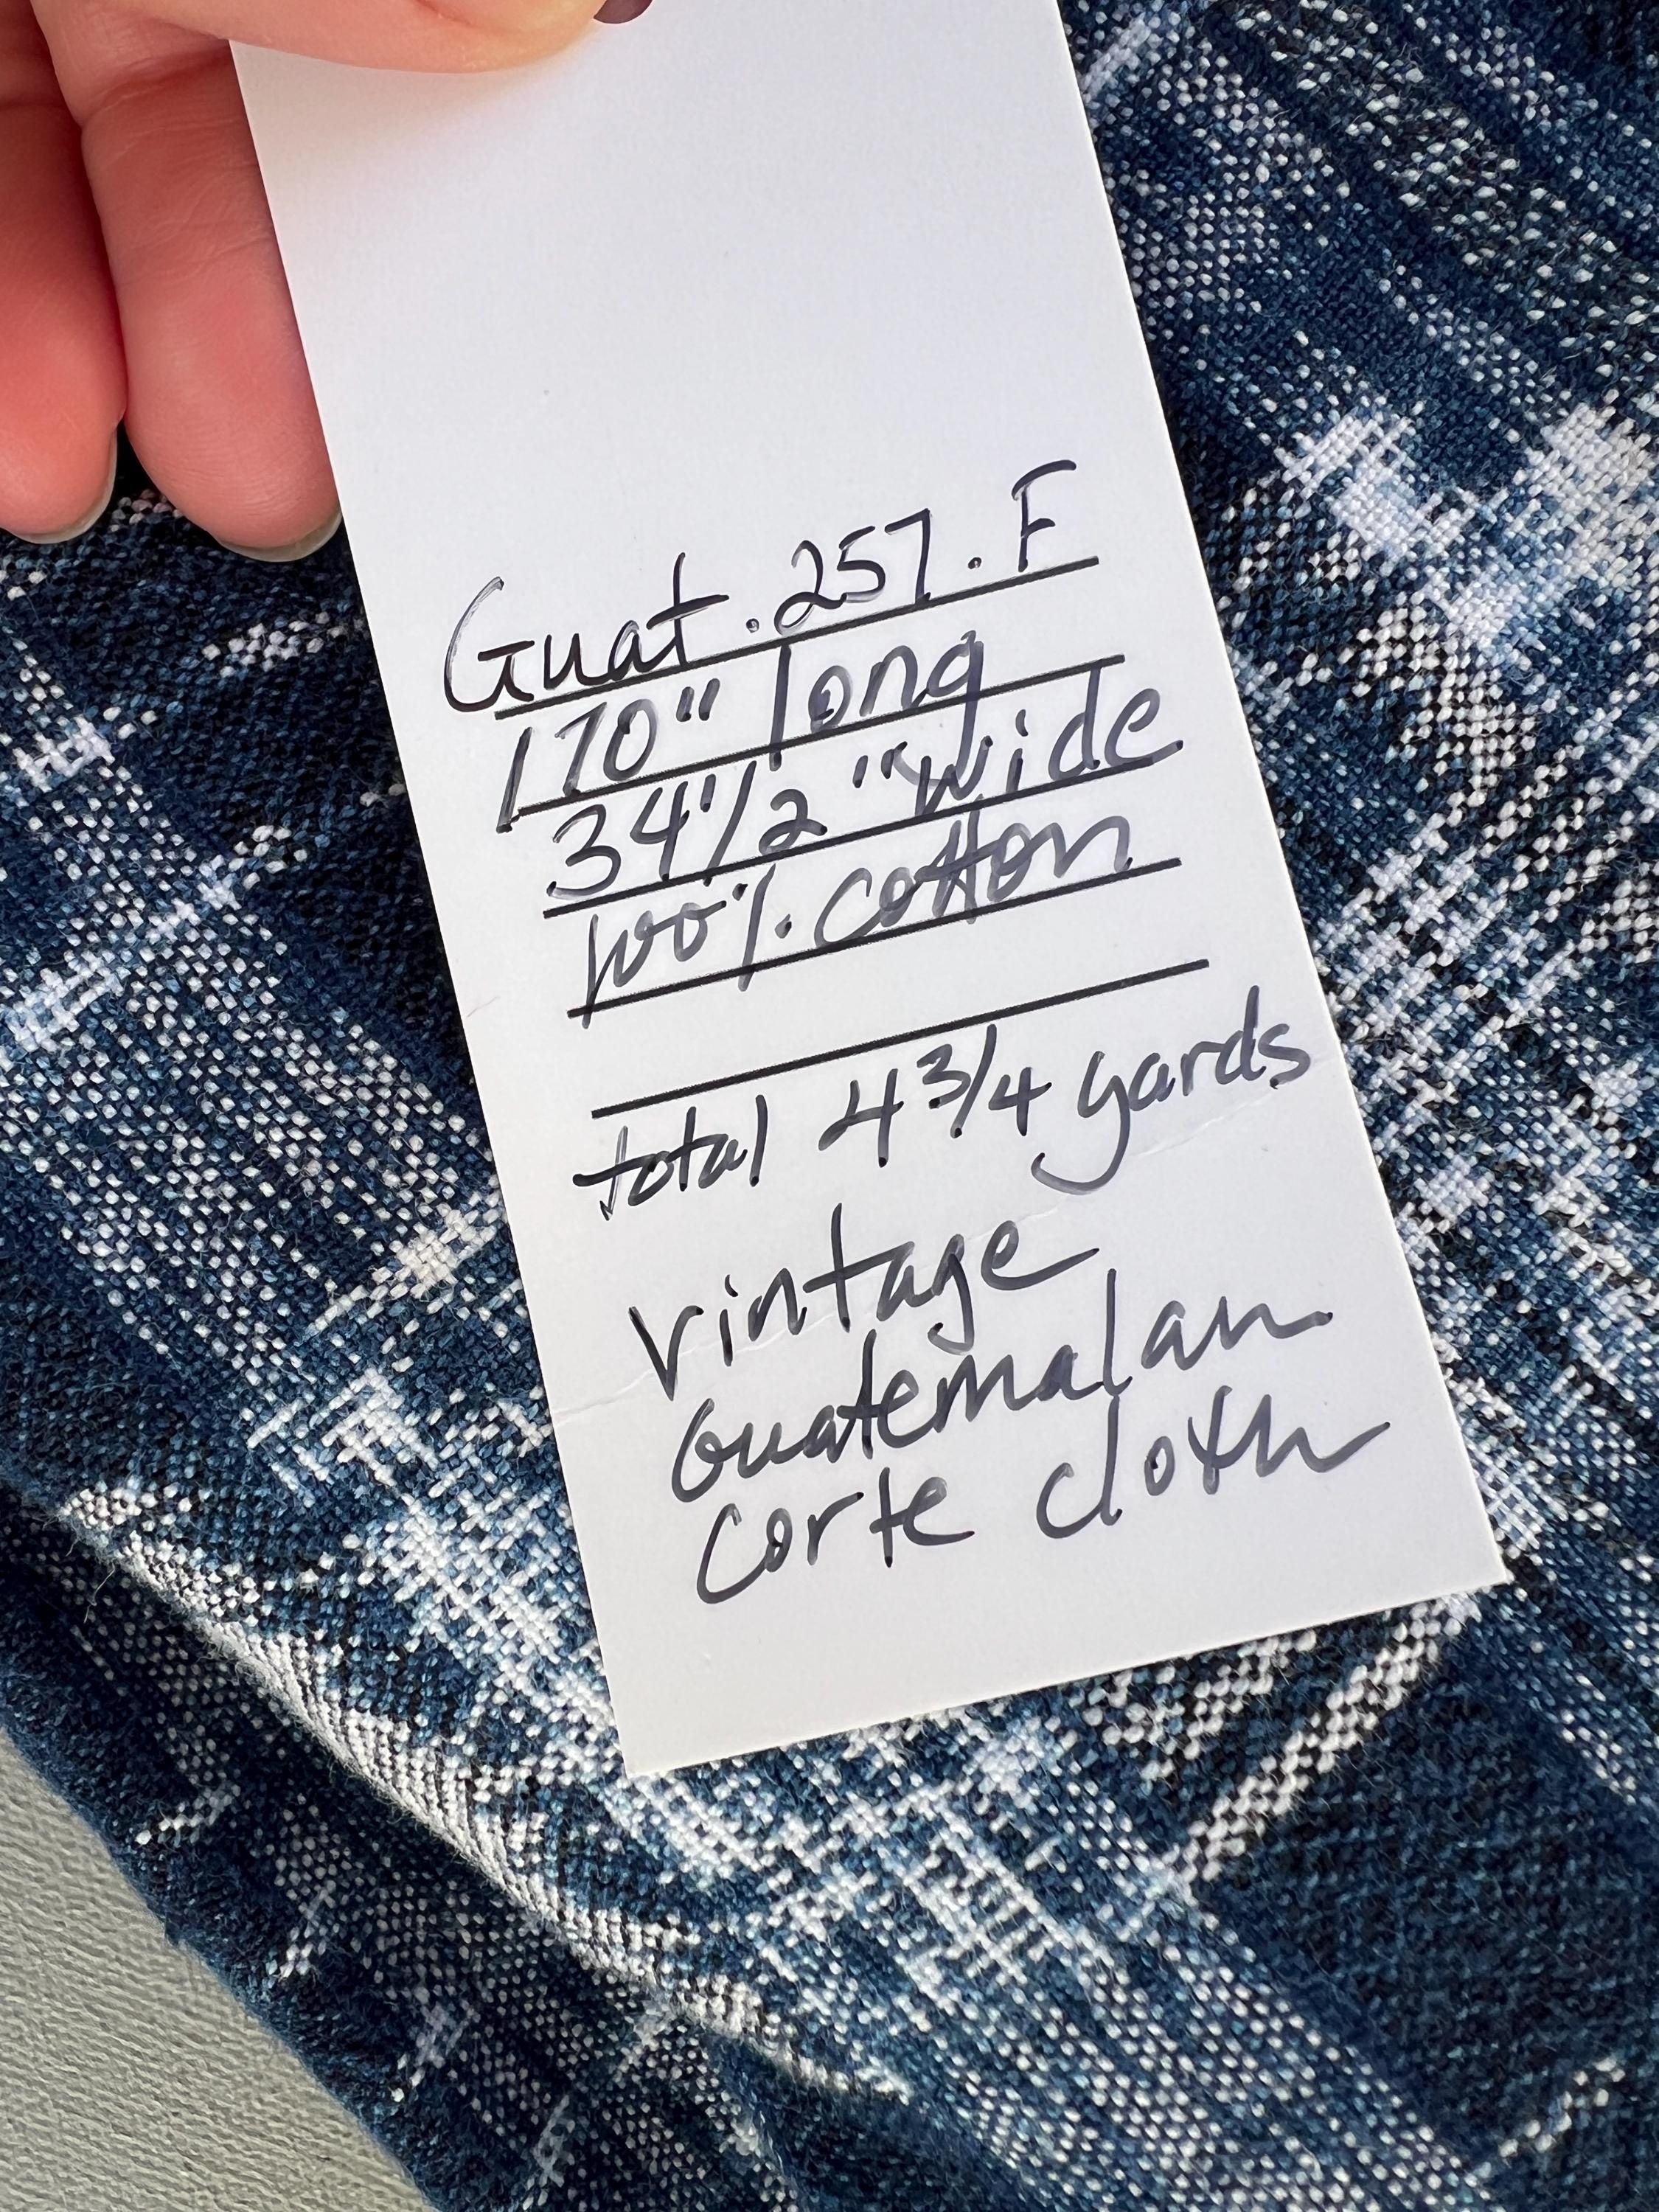 Guat.257.F
170" long
34 1/2" wide
100% cotton
total 4 3/4 yards
vintage
Guatemalan
corte cloth